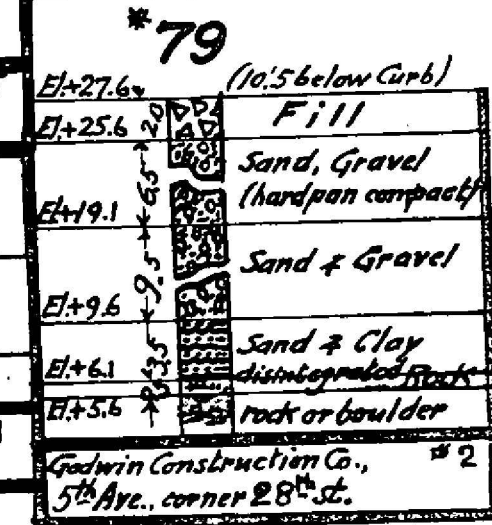 #79
El.+27.6 (10.5 below Curb)
2.0 Fill
El.+25.6
6.5 Sand, Gravel
(hardpan compact)
El.+19.1
9.5 Sand & Gravel
El.+9.6
3.5 Sand & Clay
El.+6.1 disintegrated Rock
0.5
El.+5.6 rock or boulder
Godwin Construction Co., #2
5th Ave., corner 28th st.